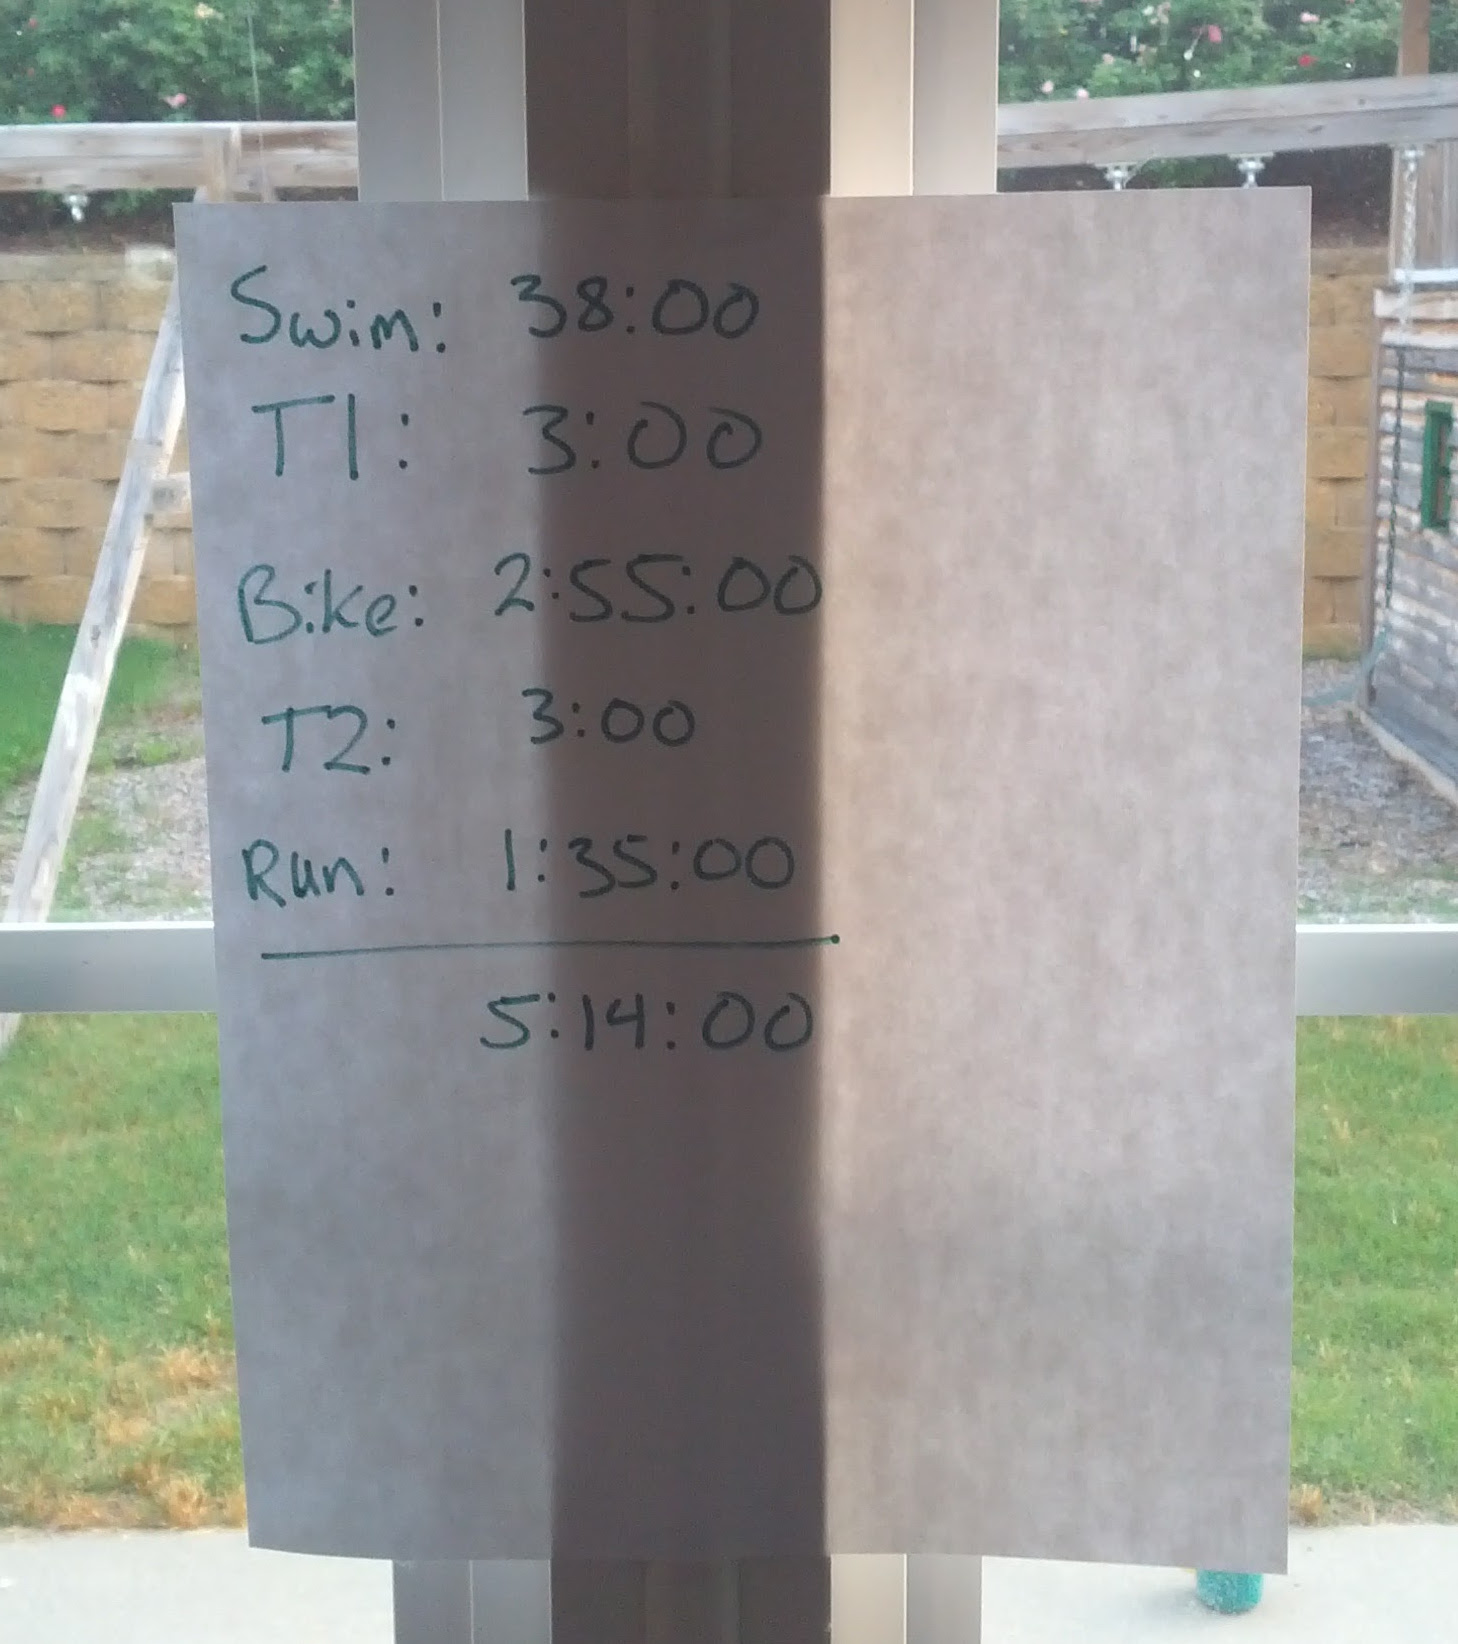 Swim: 38:00
T1: 3:00
Bike: 2:55:00
T2: 3:00
Run: 1:35:00
5:14:00